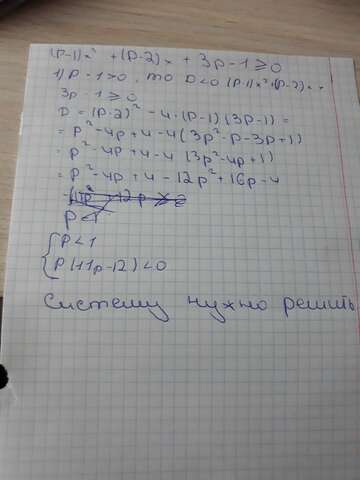 (p-1)x² + (p-2)x + 3p-1 ≥ 0
1) p-1>0, то D<0 (p-1)x²+(p-2)x+
3p-1 ≥ 0
D = (p-2)² - 4·(p-1)(3p-1) =
= p² - 4p + 4 - 4(3p² - p - 3p + 1)
= p² - 4p + 4 - 4(3p² - 4p + 1)
= p² - 4p + 4 - 12p² + 16p - 4
p<1
{p<1
p(11p-12)<0
Систему нужно решить